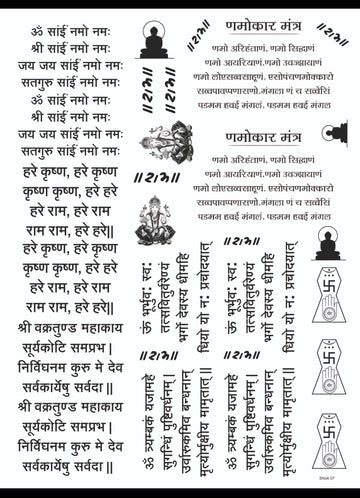 ॐ सांई नमो नमः
श्री सांई नमो नमः
जय जय सांई नमो नमः
सतगुरु सांई नमो नमः
ॐ सांई नमो नमः
श्री सांई नमो नमः
जय जय सांई नमो नमः
सतगुरु सांई नमो नमः
हरे कृष्ण, हरे कृष्ण
कृष्ण कृष्ण, हरे हरे
हरे राम, हरे राम
राम राम, हरे हरे||
हरे कृष्ण, हरे कृष्ण
कृष्ण कृष्ण, हरे हरे
हरे राम, हरे राम
राम राम, हरे हरे||
श्री वक्रतुण्ड महाकाय
सूर्यकोटि समप्रभ |
निर्विघनम कुरु मे देव
सर्वकार्येषु सर्वदा ||
श्री वक्रतुण्ड महाकाय
सूर्यकोटि समप्रभ |
निर्विघनम कुरु मे देव
सर्वकार्येषु सर्वदा ||
णमोकार मंत्र
णमो अरिहंताणं, णमो सिद्धाणं
णमो आयरियाणं.णमो उवज्झायाणं
णमो लोएसव्वसाहूणं. एसोपंचणमोक्कारो
सव्वपावप्पणासणो.मंगलाणं च सव्वेसिं
पडमम हवई मंगलं. पडमम हवई मंगल
णमोकार मंत्र
णमो अरिहंताणं, णमो सिद्धाणं
णमो आयरियाणं.णमो उवज्झायाणं
णमो लोएसव्वसाहूणं. एसोपंचणमोक्कारो
सव्वपावप्पणासणो.मंगलाणं च सव्वेसिं
पडमम हवई मंगलं. पडमम हवई मंगल
ऊं भर्भुवः स्वः
तत्सवितुर्वरेण्यं
भर्गो देवस्य धीमहि
धियो यो नः प्रचोदयात्
ऊं भर्भुवः स्वः
तत्सवितुर्वरेण्यं
भर्गो देवस्य धीमहि
धियो यो नः प्रचोदयात्
ॐ त्र्यम्बकं यजामहे
सुगन्धिं पुष्टिवर्धनम् |
उर्वारुकमिव बन्धनान्
मृत्योर्मुक्षीय मामृतात् ||
ॐ त्र्यम्बकं यजामहे
सुगन्धिं पुष्टिवर्धनम् |
उर्वारुकमिव बन्धनान्
मृत्योर्मुक्षीय मामृतात् ||
Shlok 07